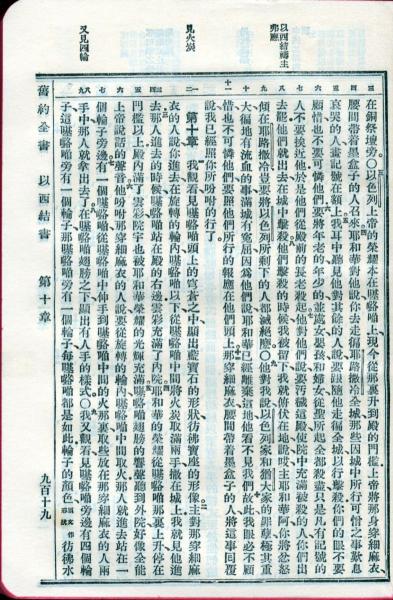 以西結禱主
弗應
見火炭
又見四輪
三 在銅祭壇旁○以色列上帝的榮耀本在上、現今從那裏升到殿的門檻、上帝將那身穿細麻衣、
四 腰間帶着墨盒子的人召來、耶和華對他說你去走徧耶路撒冷全城、那些因城中所行可憎之事歎息
五 哀哭的人、畫記號在額上、我耳中聽見他對其餘的人說、要跟隨他走徧全城、以行擊殺、你們的眼不要
六 顧惜也不要可憐他們、要將年老的年少的並處女嬰孩和婦女、從聖所起全都殺盡、只是凡有記號的
七 人不要挨近他、於是他們從殿前的長老殺起、他對他們說要污穢這殿使院中充滿被殺的人、你們出
八 去罷、他們就出去在城中擊殺、他們擊殺的時候我被留下、我就俯伏在地說哎主耶和華阿、你將忿怒
九 傾在耶路撒冷、豈要將以色列所剩下的人都滅絕麼○他對我說以色列家和猶大家的罪孽極其重
十 大、徧地有流血的事、滿城有寃屈、因爲他們說耶和華已經離棄這地、他看不見我們、故此我眼必不顧
十一 惜也不可憐他們、要照他們所行的報應在他們頭上、那穿細麻衣腰間帶着墨盒子的人將這事回覆
說我已經照你所吩咐的行了、
第十章 一 我觀看見頭上的穹蒼之中顯出藍寶石的形狀、彷彿寶座的形像、主對那穿細麻
二 衣的人說、你進去在旋轉的輪內以下從中間將火炭取滿兩手撒在城上、我就見他進
三四 去、那人進去的時候站在殿的右邊、雲彩充滿了內院、耶和華的榮耀從那裏上升停在
五 門檻以上、殿內滿了雲彩、院宇也被耶和華榮耀的光輝充滿、翅膀的響聲聽到外院、好像全能
六 上帝說話的聲音、他吩咐那穿細麻衣的人說、要從旋轉的輪內中間取火、那人就進去站在一
七 個輪子旁邊、有一個從中間伸手到中間的火那裏取些放在那穿細麻衣的人兩
八九 手中、那人就拿出去了、在翅膀之下顯出有人手的樣式○我又觀看見旁邊有四個輪
子、這旁有一個輪子、那旁有一個輪子、每都是如此、輪子的顏色彷彿水
舊約全書 以西結書 第十章 九百十九